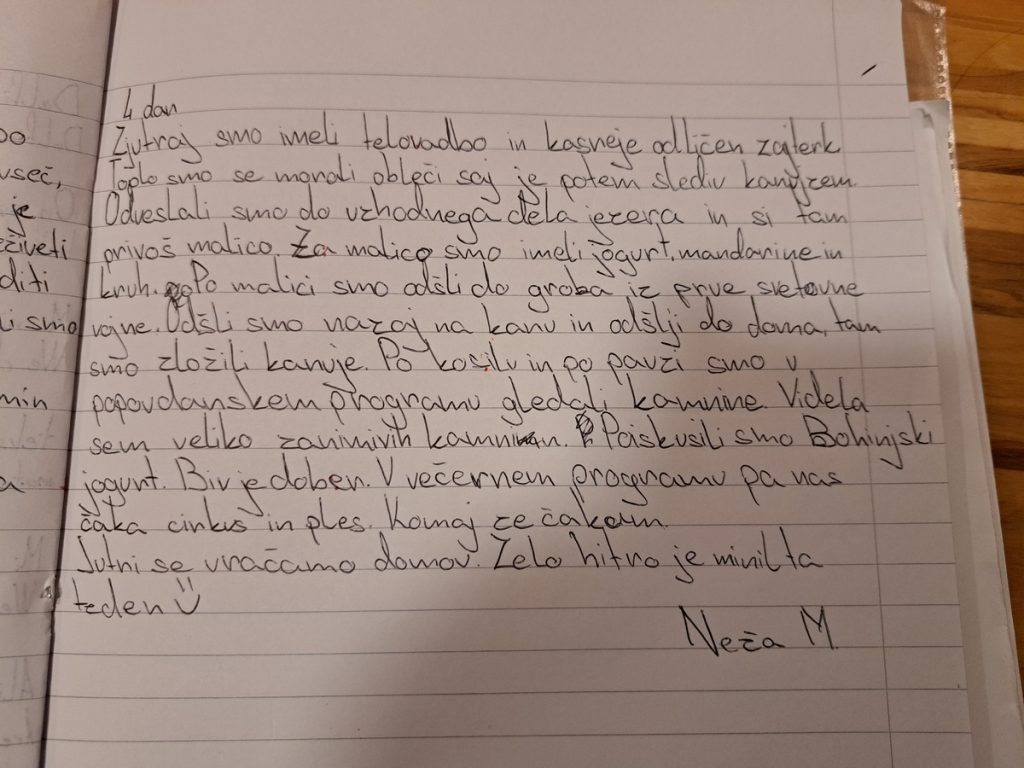 4 dan
Zjutraj smo imeli telovadbo in kasneje odličen zajterk
vseč, Toplo smo se morali obleči saj je potem slediv kanujzem.
je Odveslali smo do vzhodnega dela jezera in si tam
eživeti privoš malico. Za malico smo imeli jogurt, mandarine in
diti kruh. Po malici smo odšli do groba iz prve svetovne
li smo vojne. Odšli smo nazaj na kanu in odšlji do doma, tam
smo zložili kanuje. Po kosilu in po pavzi smo v
min popoudanskem programu gledali kamnine. Videla
sem veliko zanimivih kamninn. Poiskusili smo Bohinjski
a jogurt. Biv je dober. V večernem programu pa nas
čaka cirkus in ples. Komaj ze čakam.
Jutri se vračamo domov. Zelo hitro je minil ta
teden
Neža M.